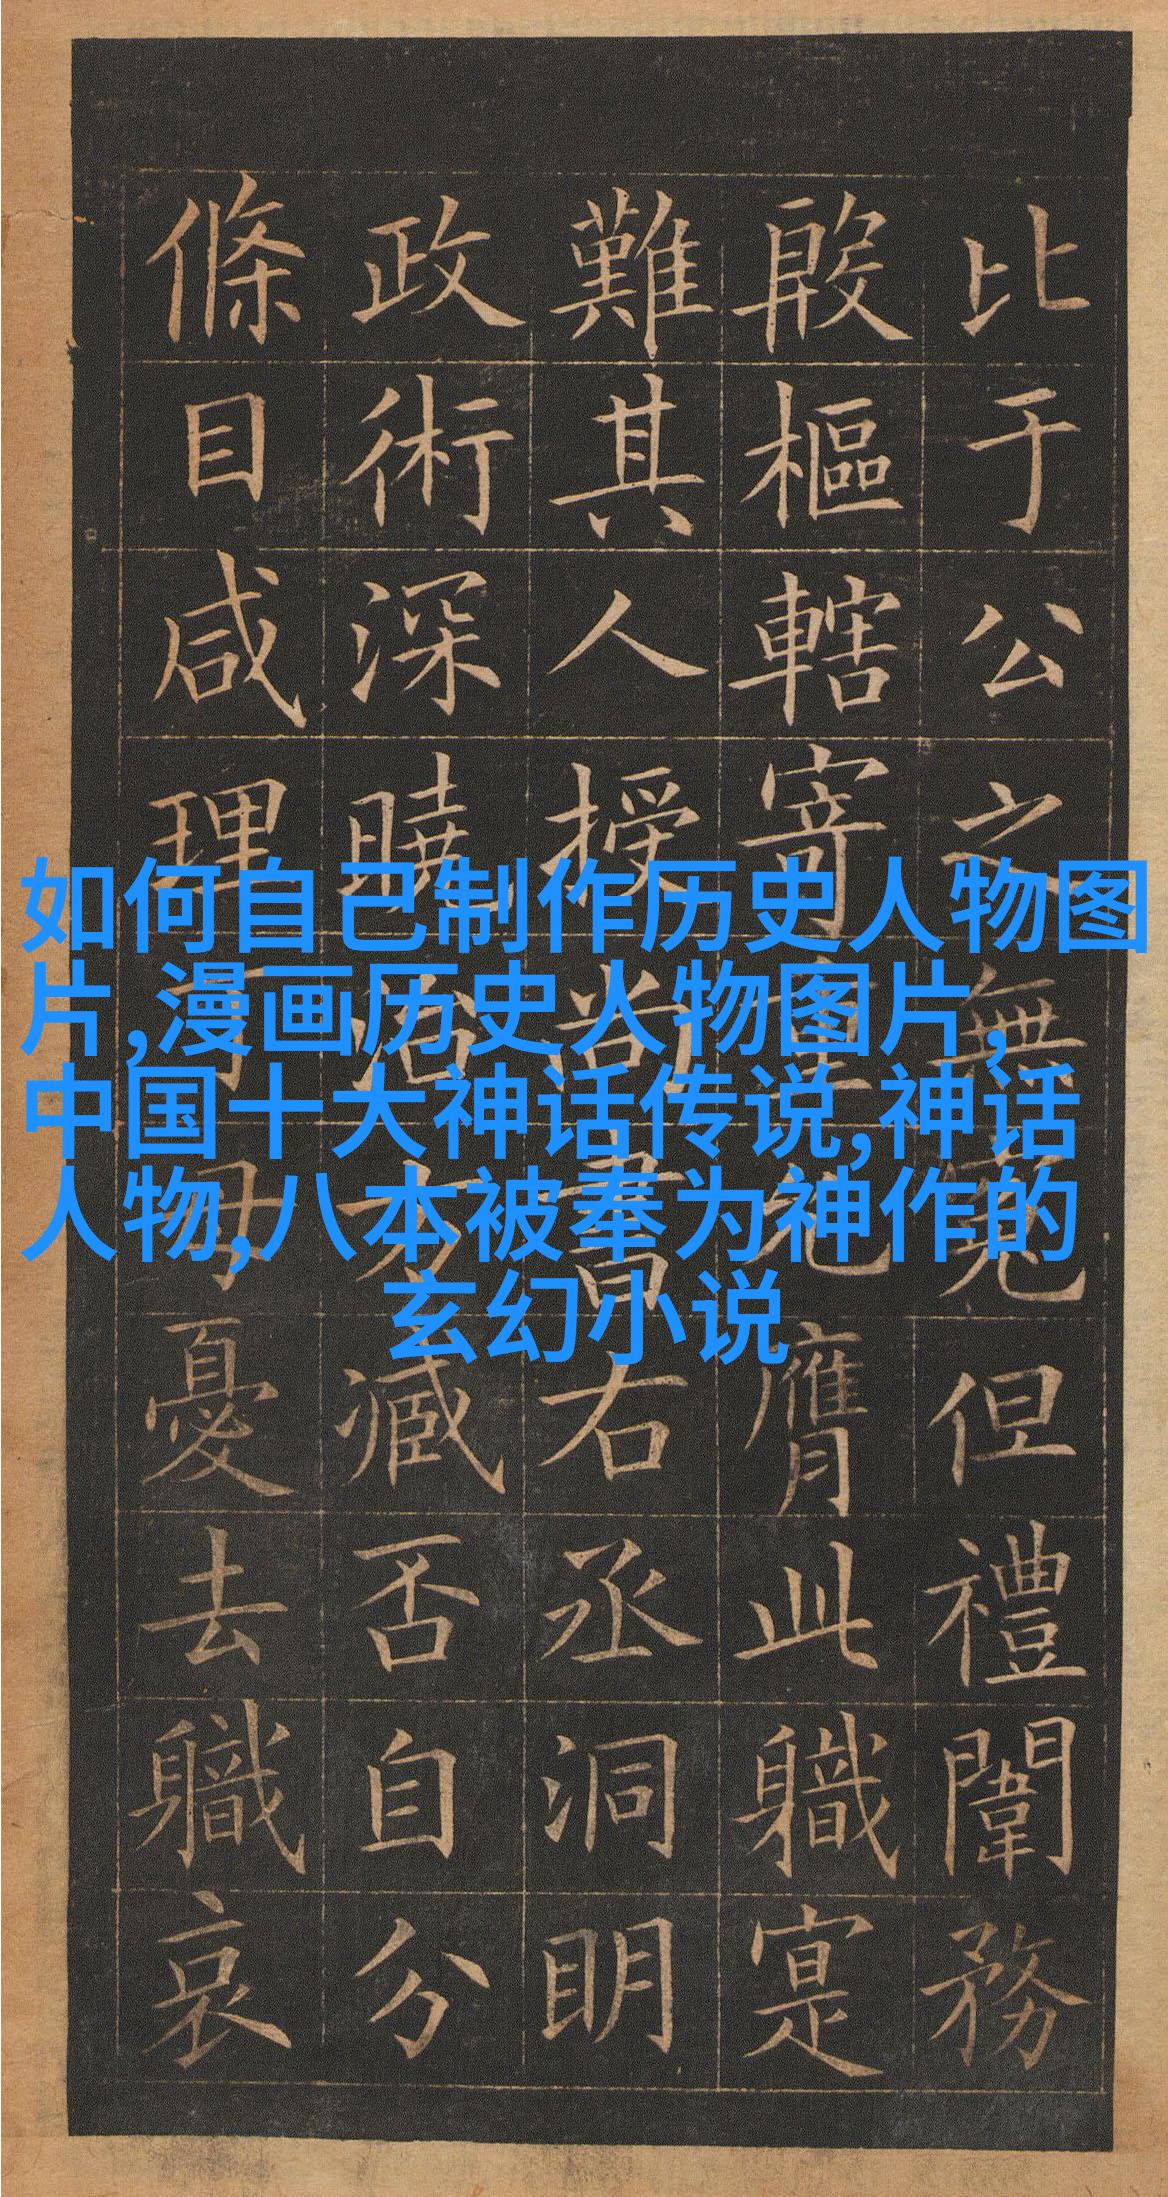 比于公之無但禮闈務
殷樞轄寄重膺此職寔
難其人授尚書右丞洞明
政術深曉治方臧否自分
條目咸理丁母憂去職哀
如何自己制作历史人物图
片,漫画历史人物图片,
中国十大神话传说,神话
人物,八本被奉为神作的
玄幻小说